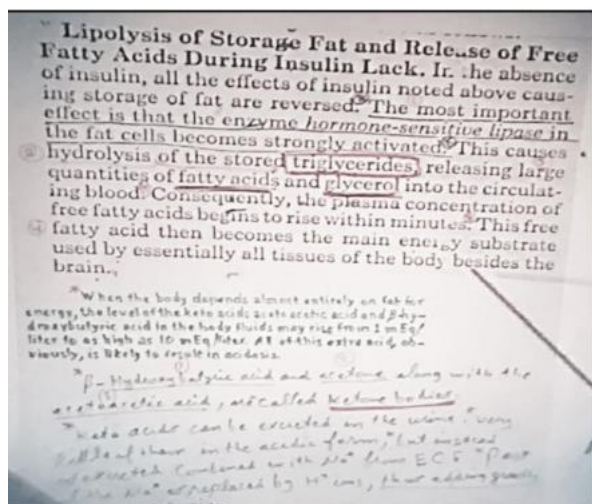 Lipolysis of Storage Fat and Release of Free
Fatty Acids During Insulin Lack. In the absence
of insulin, all the effects of insulin noted above caus-
ing storage of fat are reversed. The most important
effect is that the enzyme hormone-sensitive lipase in
the fat cells becomes strongly activated. This causes
hydrolysis of the stored triglycerides, releasing large
quantities of fatty acids and glycerol into the circulat-
ing blood. Consequently, the plasma concentration of
free fatty acids begins to rise within minutes. This free
fatty acid then becomes the main energy substrate
used by essentially all tissues of the body besides the
brain.
"When the body depends almost entirely on fat for
energy, the level of the keto acids acetoacetic acid and β-hy-
droxybutyric acid in the body fluids may rise from 1 mEq/
liter to as high as 10 mEq/liter. All of this extra acid, ob-
viously, is likely to result in acidosis.
β-Hydroxybutyric acid and acetone along with the
acetoacetic acid, are called ketone bodies.
"Keto acids can be excreted in the urine. "very
of them in the acidic form, but instead
excreted combined with Na⁺ from ECF "Part
the Na⁺ replaced by H⁺ ions, thus adding